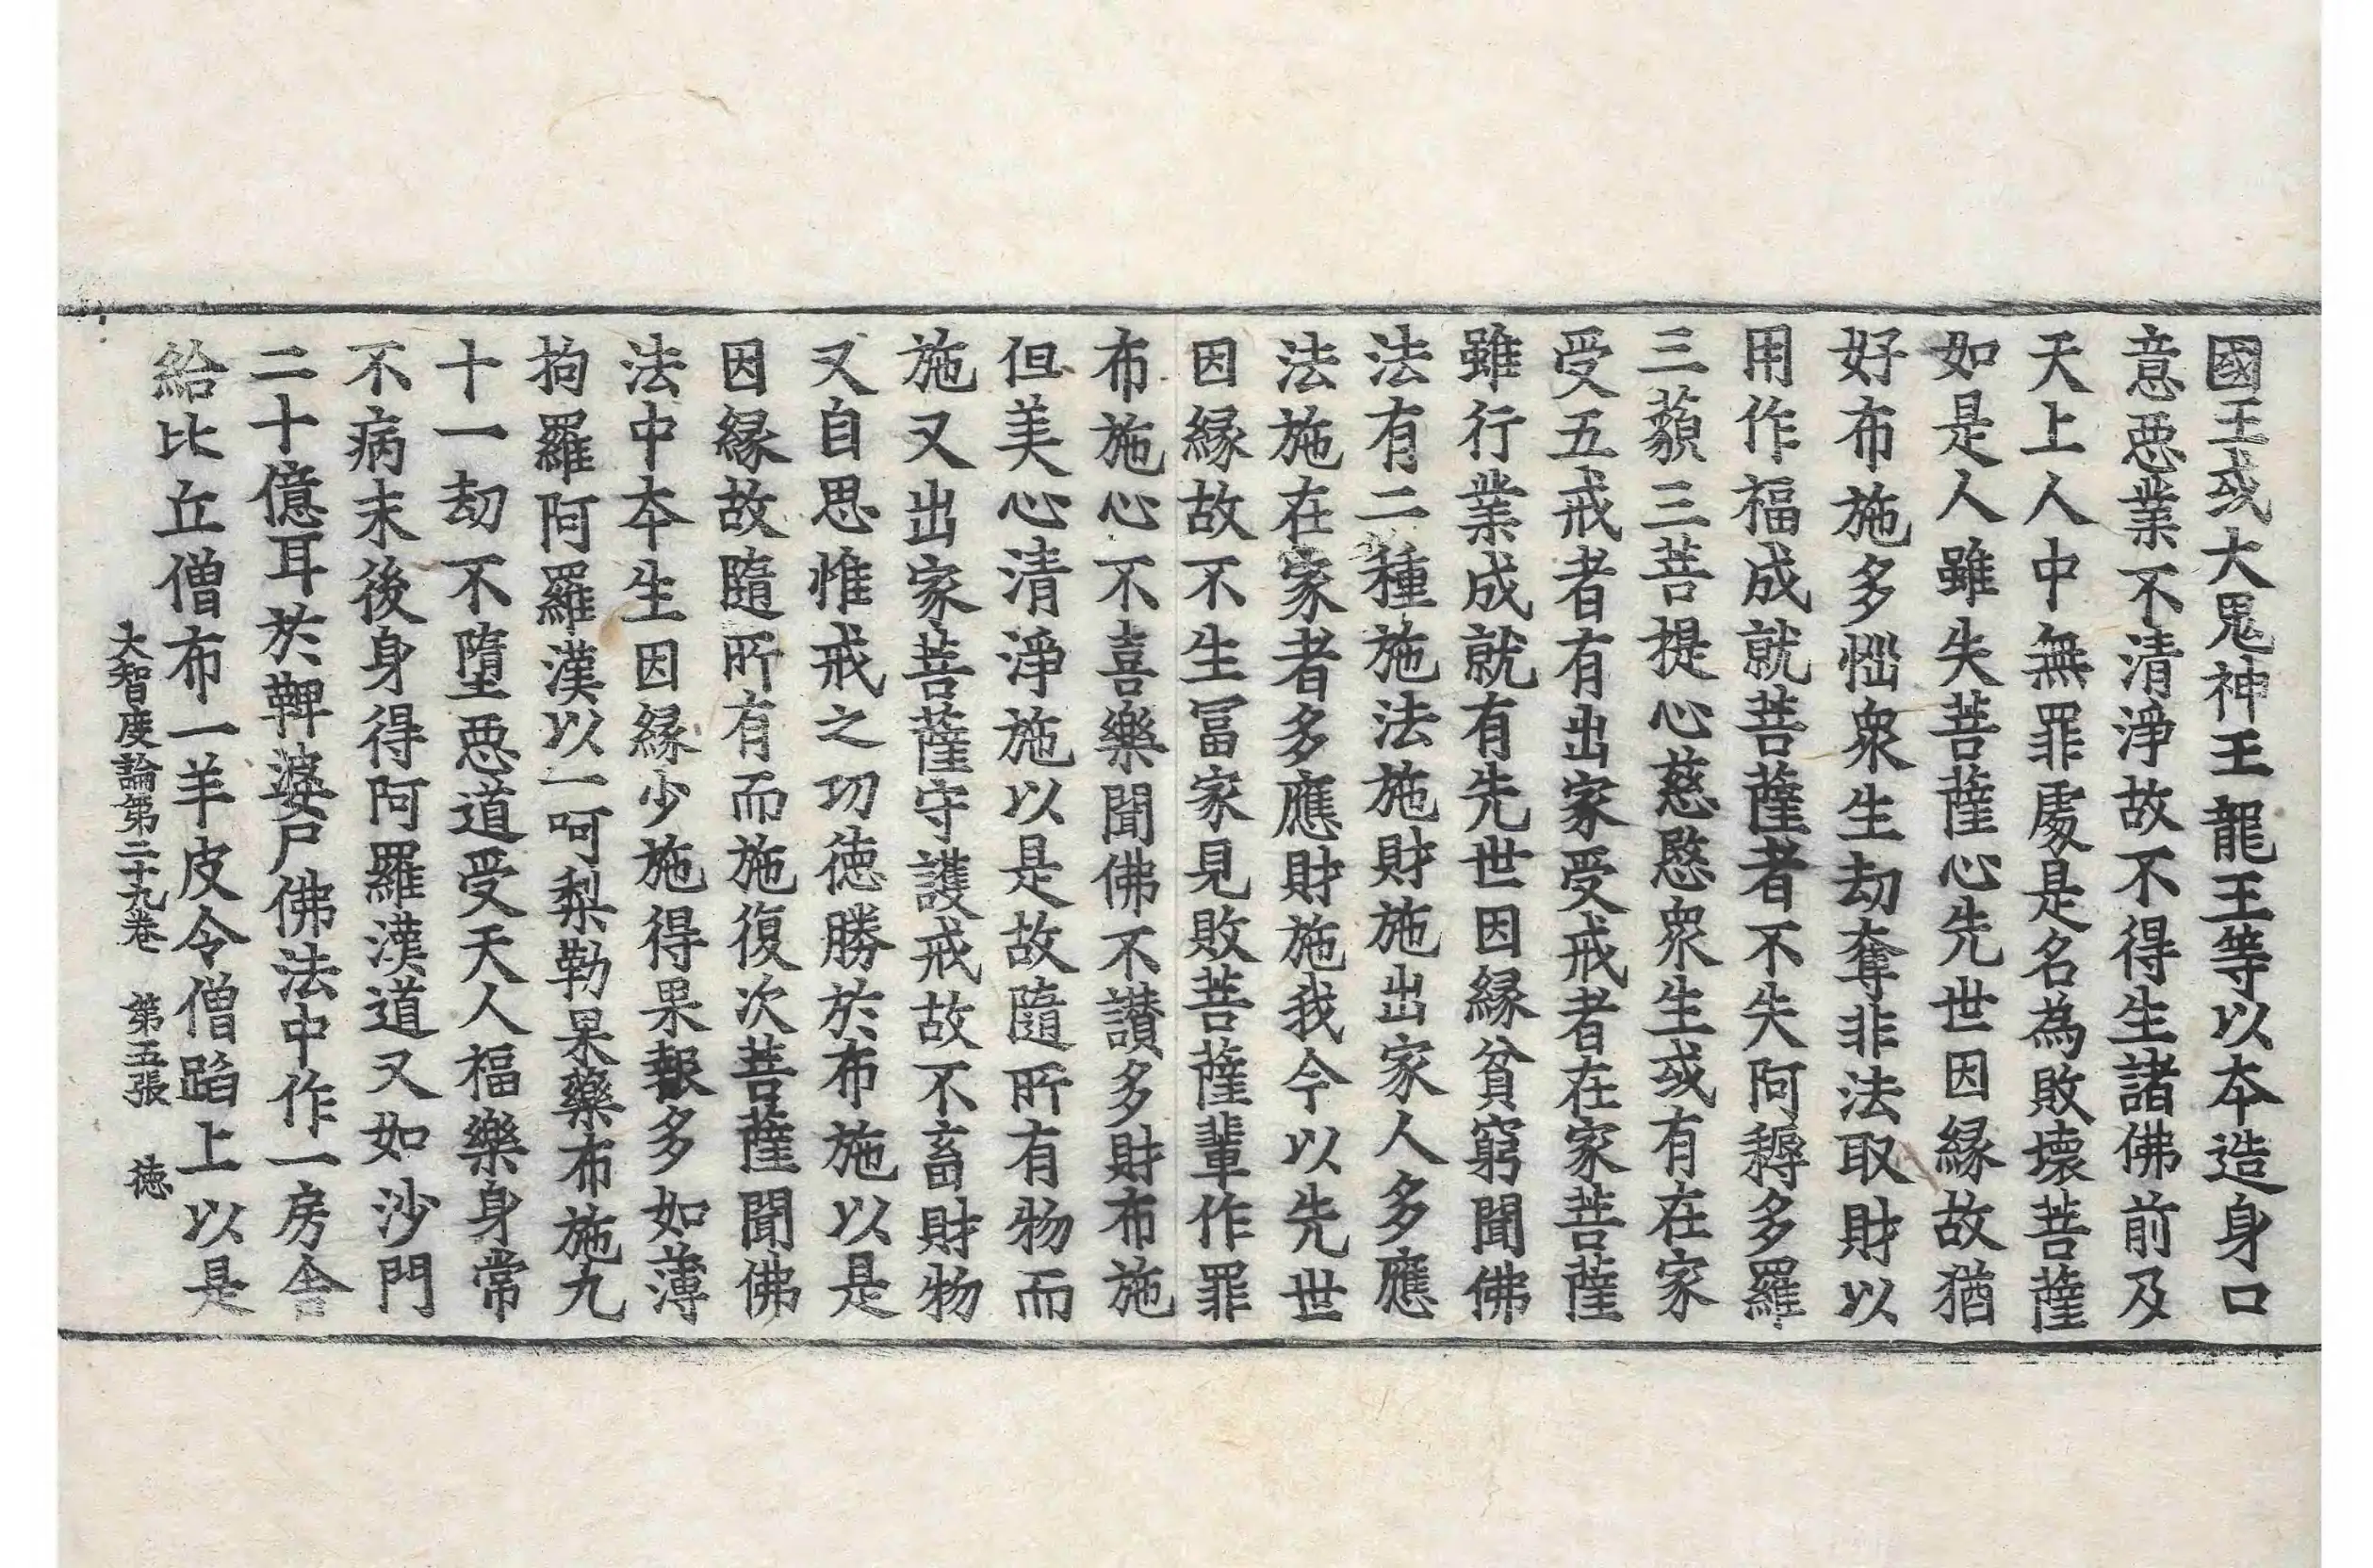 國王或大鬼神王龍王等以夲造身口
意惡業不清淨故不得生諸佛前及
天上人中無罪處是名為敗壞菩薩
如是人雖失菩薩心先世因緣故猶
好布施多惱衆生劫奪非法取財以
用作福成就菩薩者不失阿耨多羅
三藐三菩提心慈愍衆生或有在家
受五戒者有出家受戒者在家菩薩
雖行業成就有先世因緣貧窮聞佛
法有二種施法施財施出家人多應
法施在家者多應財施我今以先世
因緣故不生冨家見敗菩薩輩作罪
布施心不喜樂聞佛不讃多財布施
但美心清淨施以是故隨所有物而
施又出家菩薩守護戒故不畜財物
又自思惟戒之功徳勝於布施以是
因緣故隨所有而施復次菩薩聞佛
法中夲生因緣少施得果報多如薄
拘羅阿羅漢以一呵梨勒果藥布施九
十一劫不墮惡道受天人福樂身常
不病末後身得阿羅漢道又如沙門
二十億耳於鞞婆尸佛法中作一房舎
給比丘僧布一羊皮令僧蹈上以是
大智度論第二十九卷 第五張 徳